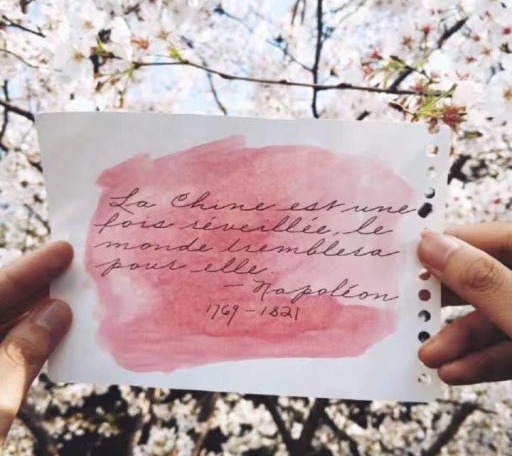 La Chine est une
fois réveillée, le
monde tremblera
pour elle.
— Napoléon
1769-1821